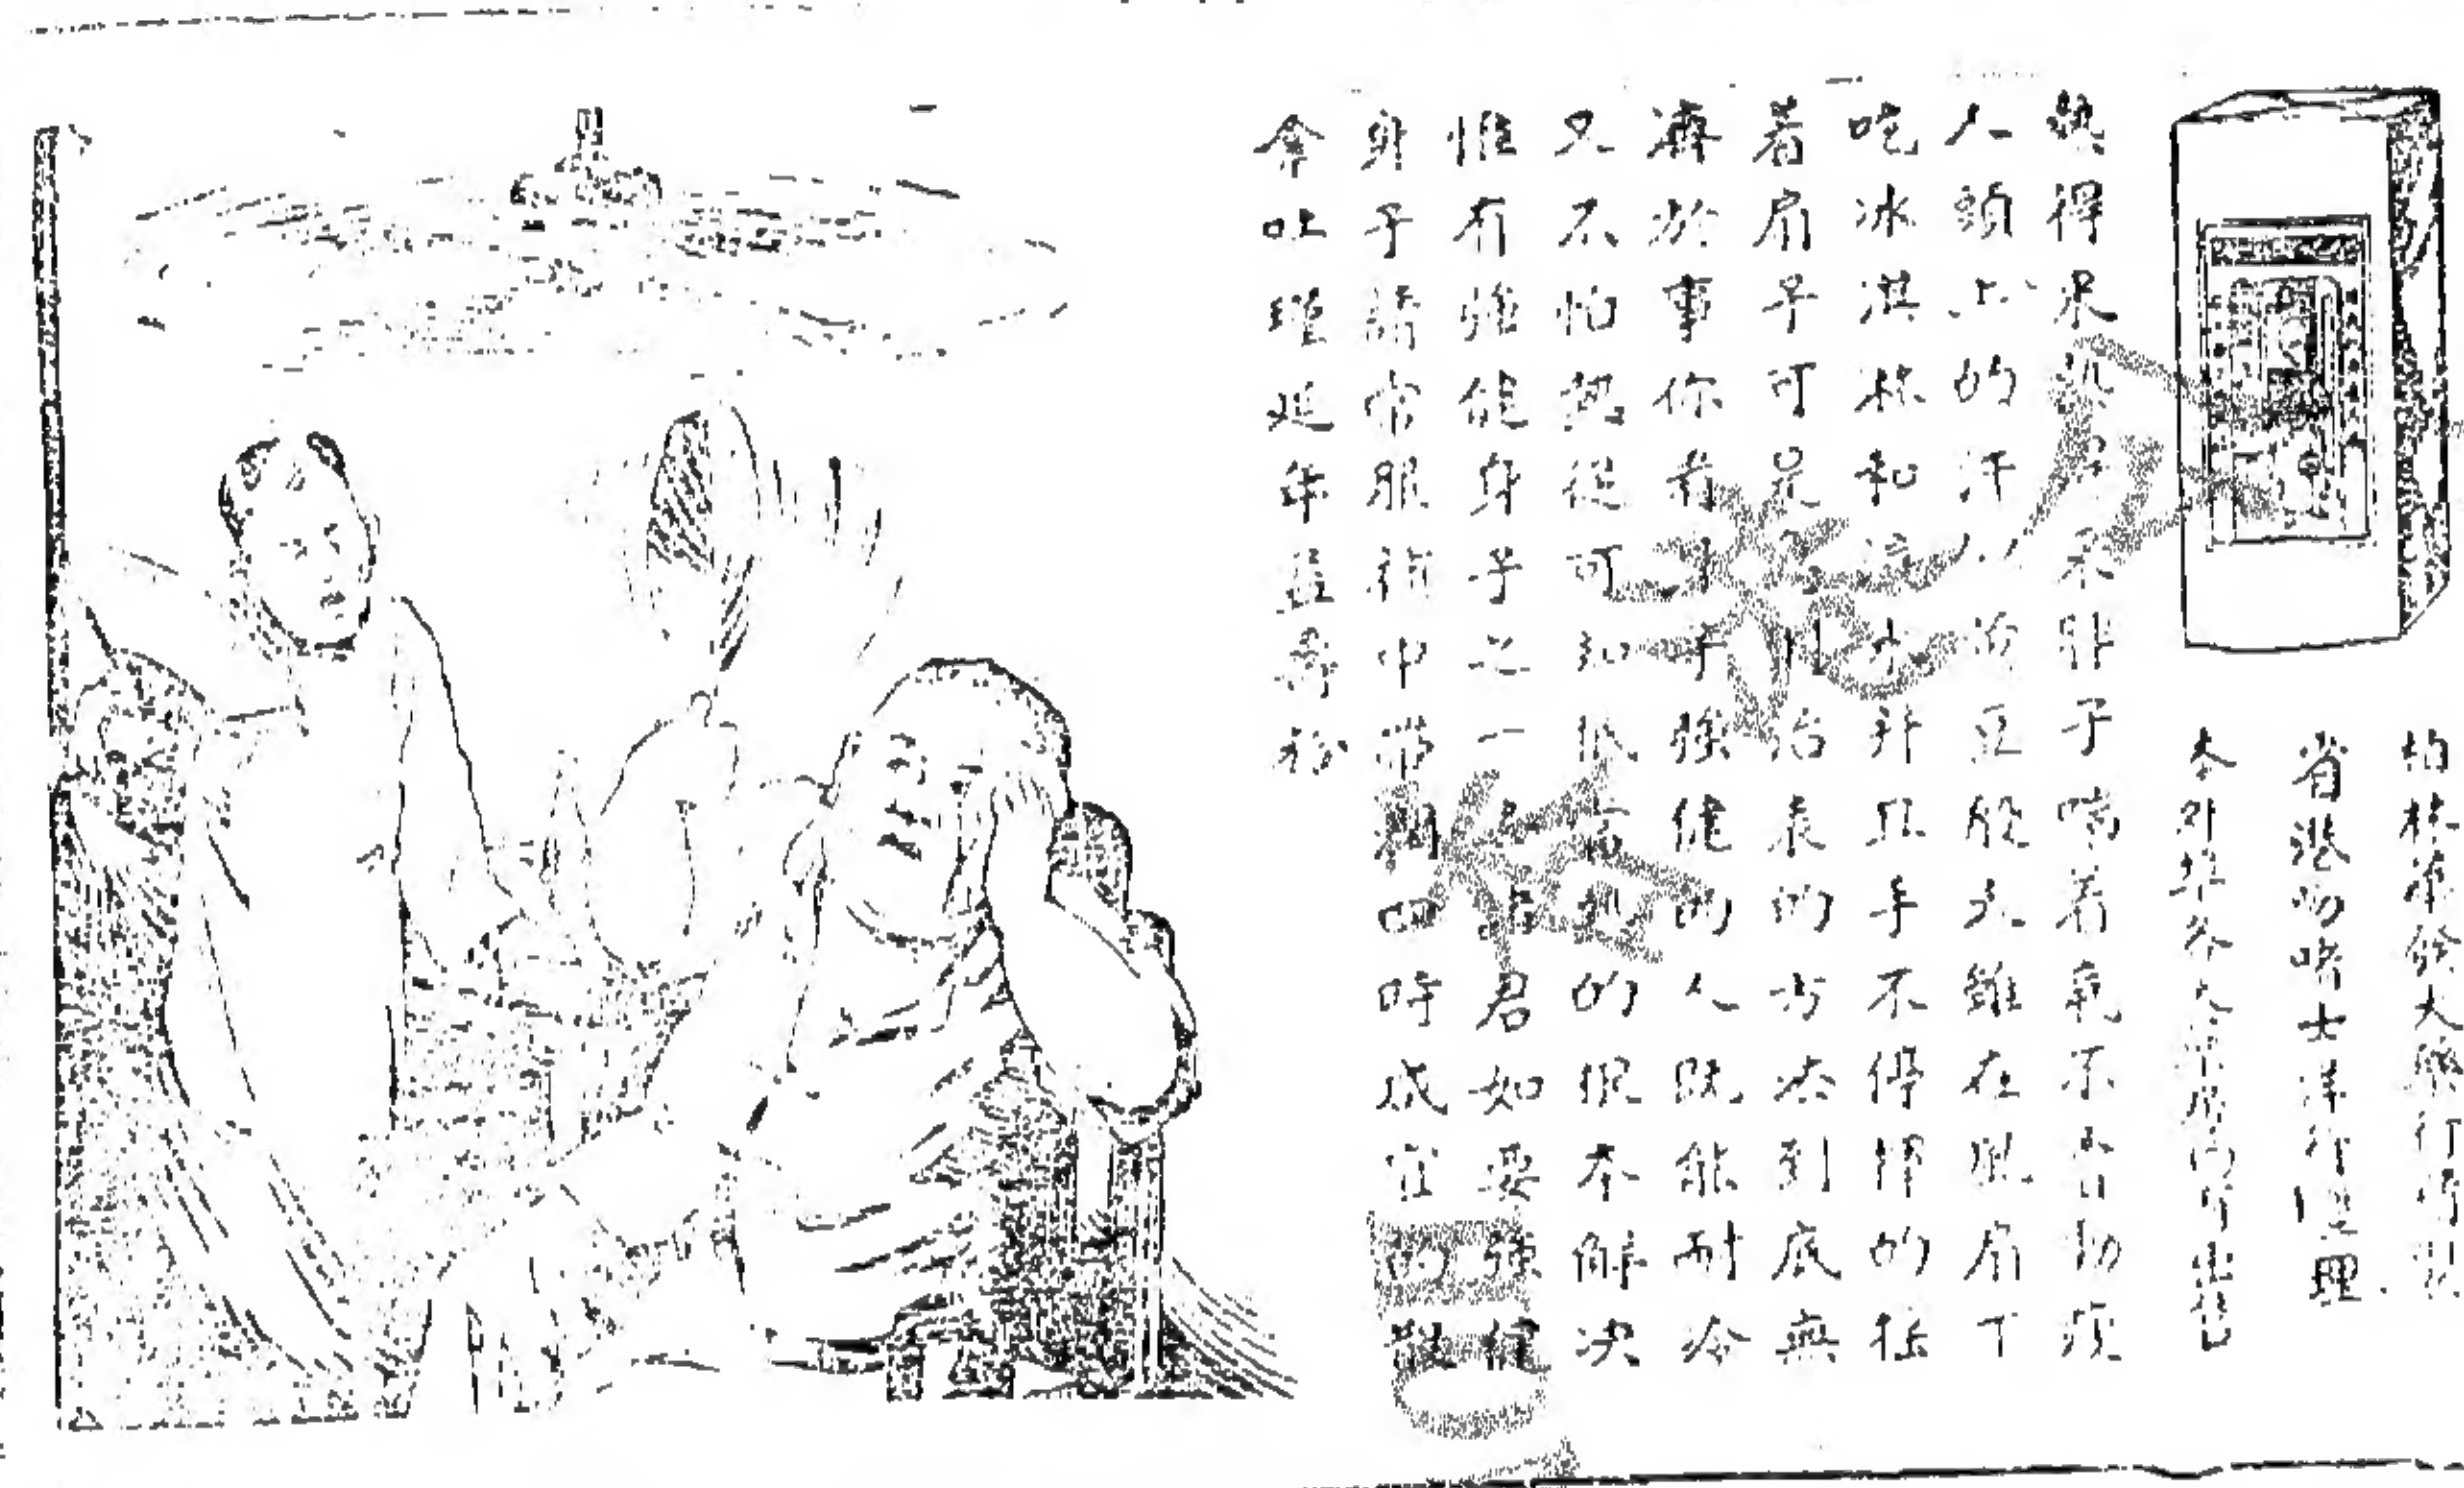 柏林藥發大藥行
省港勿啫士洋行經理
本外埠各大藥房均有出售
熱得很熱得來胖子喘着氣不肯動彈
人頭上的汗如豆般大雖在風扇下
吃冰淇林和凉水并且手不停揮的搖
着扇子可是治表的方法到底無
濟於事你看身子強健的人既能耐冷
又不怕熱從可知怕熱的根本解決
惟有強健身子之一君如要強健
身子請常服補中帶潤四時咸宜的散
拿吐瑾延年益壽粉